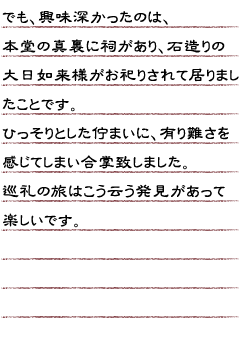 でも、興味深かったのは、
本堂の真裏に祠があり、石造りの
大日如来様がお祀りされて居りまし
たことです。
ひっそりとした佇まいに、有り難さを
感じてしまい合掌致しました。
巡礼の旅はこう云う発見があって
楽しいです。